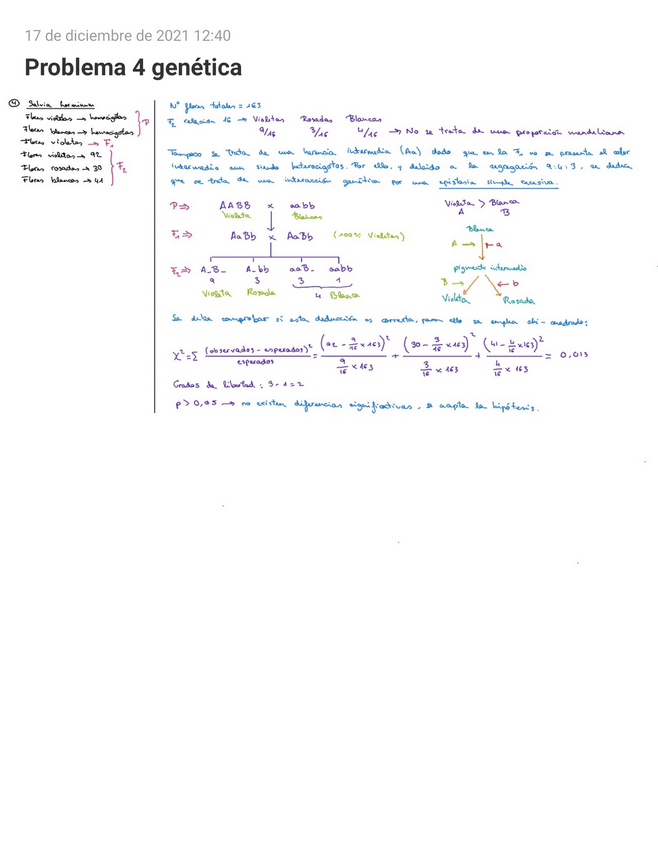 17 de diciembre de 2021 12:40
Problema 4 genética
④ Salvia horminum
Flores violetas → homocigotas } P
Flores blancas → homocigotas
Flores violetas → F₁
Flores violetas → 92 } F₂
Flores rosadas → 30
Flores blancas → 41
Nº flores totales = 163
F₂ relación 16 → Violetas Rosadas Blancas
9/16 3/16 4/16 → No se trata de una proporción mendeliana
Tampoco se trata de una herencia intermedia (Aa) dado que en la F₁ no se presenta el color
intermedio aun siendo heterocigotos. Por ello, y debido a la segregación 9:4:3, se deduce
que se trata de una interacción genética por una epistasia simple recesiva.
P ⇒ AABB x aabb
Violeta Blancas
F₁ ⇒ AaBb x AaBb (100% Violetas)
F₂ ⇒ A_B_ A_bb aaB_ aabb
9 3 3 1
Violeta Rosada 4 Blanca
Violeta > Blanca
A B
Blanca
A → ← a
pigmento intermedio
B → ← b
Violeta Rosada
Se debe comprobar si esta deducción es correcta, para ello se emplea chi-cuadrado:
χ² = Σ (observados - esperados)² / esperados = (92 - 9/16 x 163)² / (9/16 x 163) + (30 - 3/16 x 163)² / (3/16 x 163) + (41 - 4/16 x 163)² / (4/16 x 163) = 0,013
Grados de libertad: 3 - 1 = 2
p > 0,05 → no existen diferencias significativas, se acepta la hipótesis.